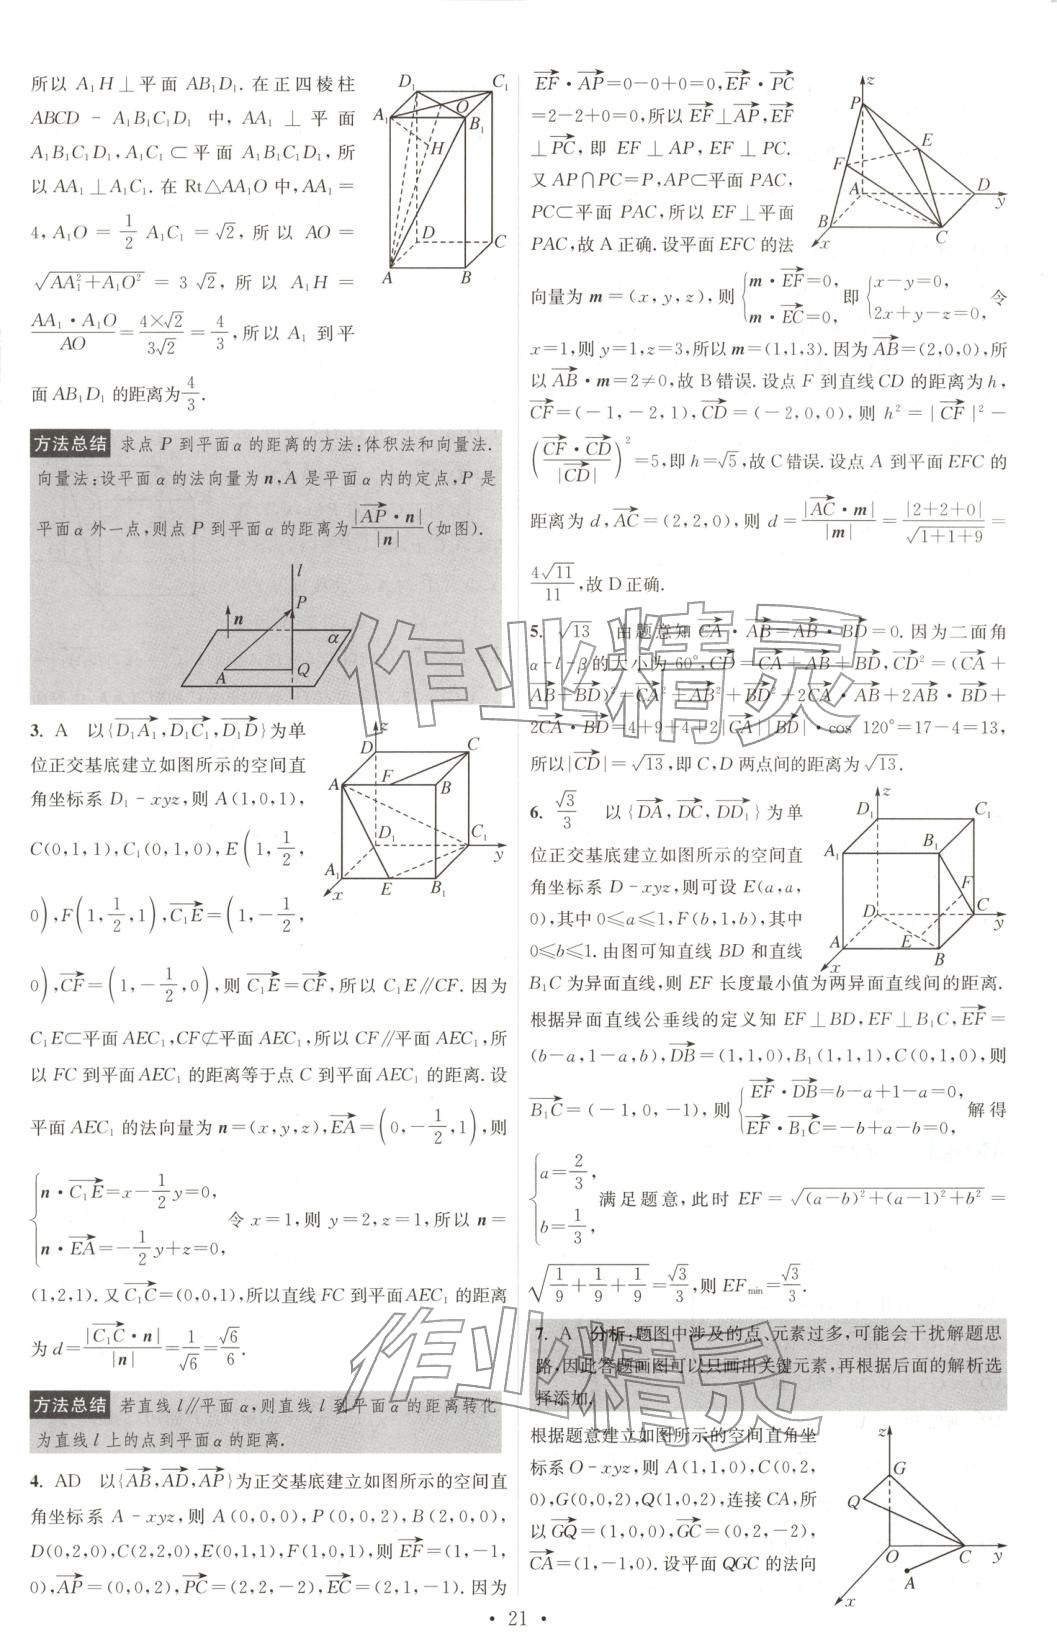 所以 A₁H⊥平面 AB₁D₁. 在正四棱柱
ABCD-A₁B₁C₁D₁ 中, AA₁⊥平面
A₁B₁C₁D₁, A₁C₁⊂平面 A₁B₁C₁D₁, 所
以 AA₁⊥A₁C₁. 在 Rt△AA₁O 中, AA₁=
4, A₁O=1/2 A₁C₁=√2, 所以 AO=
√(AA₁²+A₁O²)=3√2, 所以 A₁H=
(AA₁·A₁O)/AO=(4×√2)/(3√2)=4/3, 所以 A₁ 到平
面 AB₁D₁ 的距离为4/3.
D₁ C₁ A₁ O B₁ H D C A B
方法总结 求点 P 到平面α的距离的方法:体积法和向量法.
向量法:设平面 α 的法向量为 n, A 是平面 α 内的定点, P 是
平面α外一点,则点 P 到平面α的距离为|AP→·n|/|n|(如图).
l P n α A Q
3. A 以{D₁A₁→, D₁C₁→, D₁D→}为单
位正交基底建立如图所示的空间直
角坐标系 D₁-xyz, 则 A(1,0,1),
C(0,1,1), C₁(0,1,0), E(1,1/2,
0), F(1,1/2,1), C₁E→=(1,-1/2,
z D C F A B D₁ C₁ y A₁ E B₁ x
0), CF→=(1,-1/2,0), 则 C₁E→=CF→, 所以 C₁E∥CF. 因为
C₁E⊂平面 AEC₁, CF⊄平面 AEC₁, 所以 CF∥平面 AEC₁, 所
以 FC 到平面 AEC₁ 的距离等于点 C 到平面 AEC₁ 的距离. 设
平面 AEC₁ 的法向量为 n=(x,y,z), EA→=(0,-1/2,1), 则
{n·C₁E→=x-1/2y=0,
n·EA→=-1/2y+z=0, 令 x=1, 则 y=2, z=1, 所以 n=
(1,2,1). 又 C₁C→=(0,0,1), 所以直线 FC 到平面 AEC₁ 的距离
为 d=|C₁C→·n|/|n|=1/√6=√6/6.
方法总结 若直线 l∥平面 α, 则直线 l 到平面α的距离转化
为直线 l 上的点到平面α的距离.
4. AD 以{AB→, AD→, AP→}为正交基底建立如图所示的空间直
角坐标系 A-xyz, 则 A(0,0,0), P(0,0,2), B(2,0,0),
D(0,2,0), C(2,2,0), E(0,1,1), F(1,0,1), 则 EF→=(1,-1,
0), AP→=(0,0,2), PC→=(2,2,-2), EC→=(2,1,-1). 因为
EF→·AP→=0-0+0=0, EF→·PC→
=2-2+0=0, 所以 EF→⊥AP→, EF→
⊥PC→, 即 EF⊥AP, EF⊥PC.
又 AP∩PC=P, AP⊂平面 PAC,
PC⊂平面 PAC, 所以 EF⊥平面
PAC, 故 A 正确. 设平面 EFC 的法
z P E F A D y B C x
向量为 m=(x,y,z), 则{m·EF→=0, m·EC→=0, 即{x-y=0, 2x+y-z=0, 令
x=1, 则 y=1, z=3, 所以 m=(1,1,3). 因为 AB→=(2,0,0), 所
以 AB→·m=2≠0, 故 B 错误. 设点 F 到直线 CD 的距离为 h,
CF→=(-1,-2,1), CD→=(-2,0,0), 则 h²=|CF→|²-
(CF→·CD→/|CD→|)²=5, 即 h=√5, 故 C 错误. 设点 A 到平面 EFC 的
距离为 d, AC→=(2,2,0), 则 d=|AC→·m|/|m|=|2+2+0|/√(1+1+9)=
4√11/11, 故 D 正确.
5. √13 由题意知 CA→·AB→=AB→·BD→=0. 因为二面角
α-l-β的大小为 60°, CD→=CA→+AB→+BD→, CD→²=(CA→+
AB→+BD→)²=CA→²+AB→²+BD→²+2CA→·AB→+2AB→·BD→+
2CA→·BD→=4+9+4+2|CA→||BD→|·cos 120°=17-4=13,
所以|CD→|=√13, 即 C, D 两点间的距离为√13.
6. √3/3 以{DA→, DC→, DD₁→}为单
位正交基底建立如图所示的空间直
角坐标系 D-xyz, 则可设 E(a,a,
0), 其中 0≤a≤1, F(b,1,b), 其中
0≤b≤1. 由图可知直线 BD 和直线
z D₁ C₁ A₁ B₁ F D C y A E B x
B₁C 为异面直线, 则 EF 长度最小值为两异面直线间的距离.
根据异面直线公垂线的定义知 EF⊥BD, EF⊥B₁C, EF→=
(b-a,1-a,b), DB→=(1,1,0), B₁(1,1,1), C(0,1,0), 则
B₁C→=(-1,0,-1), 则{EF→·DB→=b-a+1-a=0, EF→·B₁C→=-b+a-b=0, 解得
{a=2/3, b=1/3, 满足题意, 此时 EF=√((a-b)²+(a-1)²+b²)=
√(1/9+1/9+1/9)=√3/3, 则 EFmin=√3/3.
7. A 分析:题图中涉及的点、元素过多,可能会干扰解题思
路,因此答题画图可以只画出关键元素,再根据后面的解析选
择添加.
根据题意建立如图所示的空间直角坐
标系 O-xyz, 则 A(1,1,0), C(0,2,
0), G(0,0,2), Q(1,0,2), 连接 CA, 所
以 GQ→=(1,0,0), GC→=(0,2,-2),
CA→=(1,-1,0). 设平面 QGC 的法向
z G Q O C y A x
· 21 ·
作业精灵
作业精灵